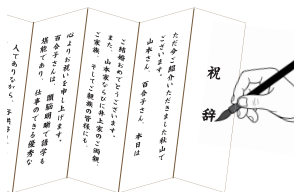 祝辞
ただ今ご紹介いただきました秋山で
ございます。
山本さん、百合子さん、本日は
ご結婚おめでとうございます。
また、山本家ならびに井上家のご両親、
ご家族、そしてご親族の皆様にも、
心よりお祝いを申し上げます。
百合子さんは、頭脳明晰で語学も
堪能であり、仕事のできる優秀な
人でありながら、